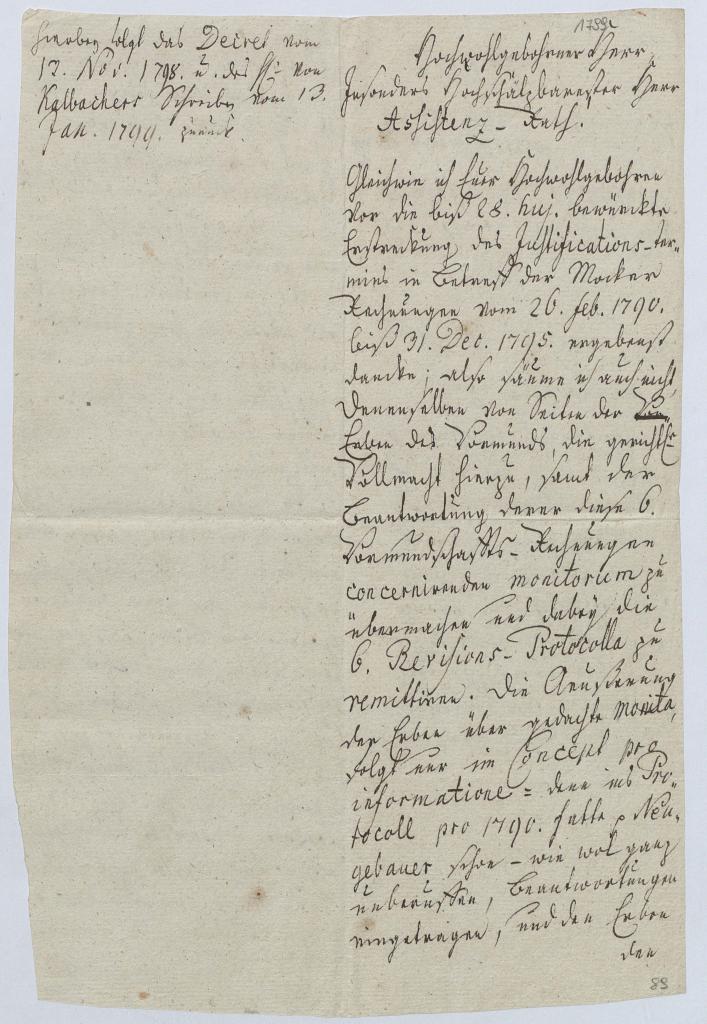 1799
hierbey folgt das Decret vom
12. Nov. 1798. u. des H: von
Kalbachers Schreiben vom 13.
Jan. 1799. zurück.
Hochwohlgebohrner Herr,
Insonders Hochschätzbarester Herr
Assistenz-Rath.
Gleichwie ich Euer Hochwohlgebohren
vor die biß 28. huj. bewürckte
Erstreckung des Justifications-ter-
mins in Betreff der Mocker
Rechnungen vom 26. feb. 1790.
biß 31. Dec. 1795. ergebenst
dancke; also säume ich auch nicht,
Denenselben von Seiten der
Erben des Vormunds, die gerichtl:
Vollmacht hierzu, samt der
Beantwortung derer diese 6.
Vormundschaffts-Rechnungen
concernirenden monitorum zu
übermachen und dabey die
6. Revisions-Protocolla zu
remittiren. Die Aeußerung
der Erben über gedachte monita,
folgt nur im Concept pro
informatione = denn ins Pro-
tocoll pro 1790. hatte p Neu-
gebauer schon - wie wol ganz
unberuffen, Beantwortungen
eingetragen, und den Erben
den
89